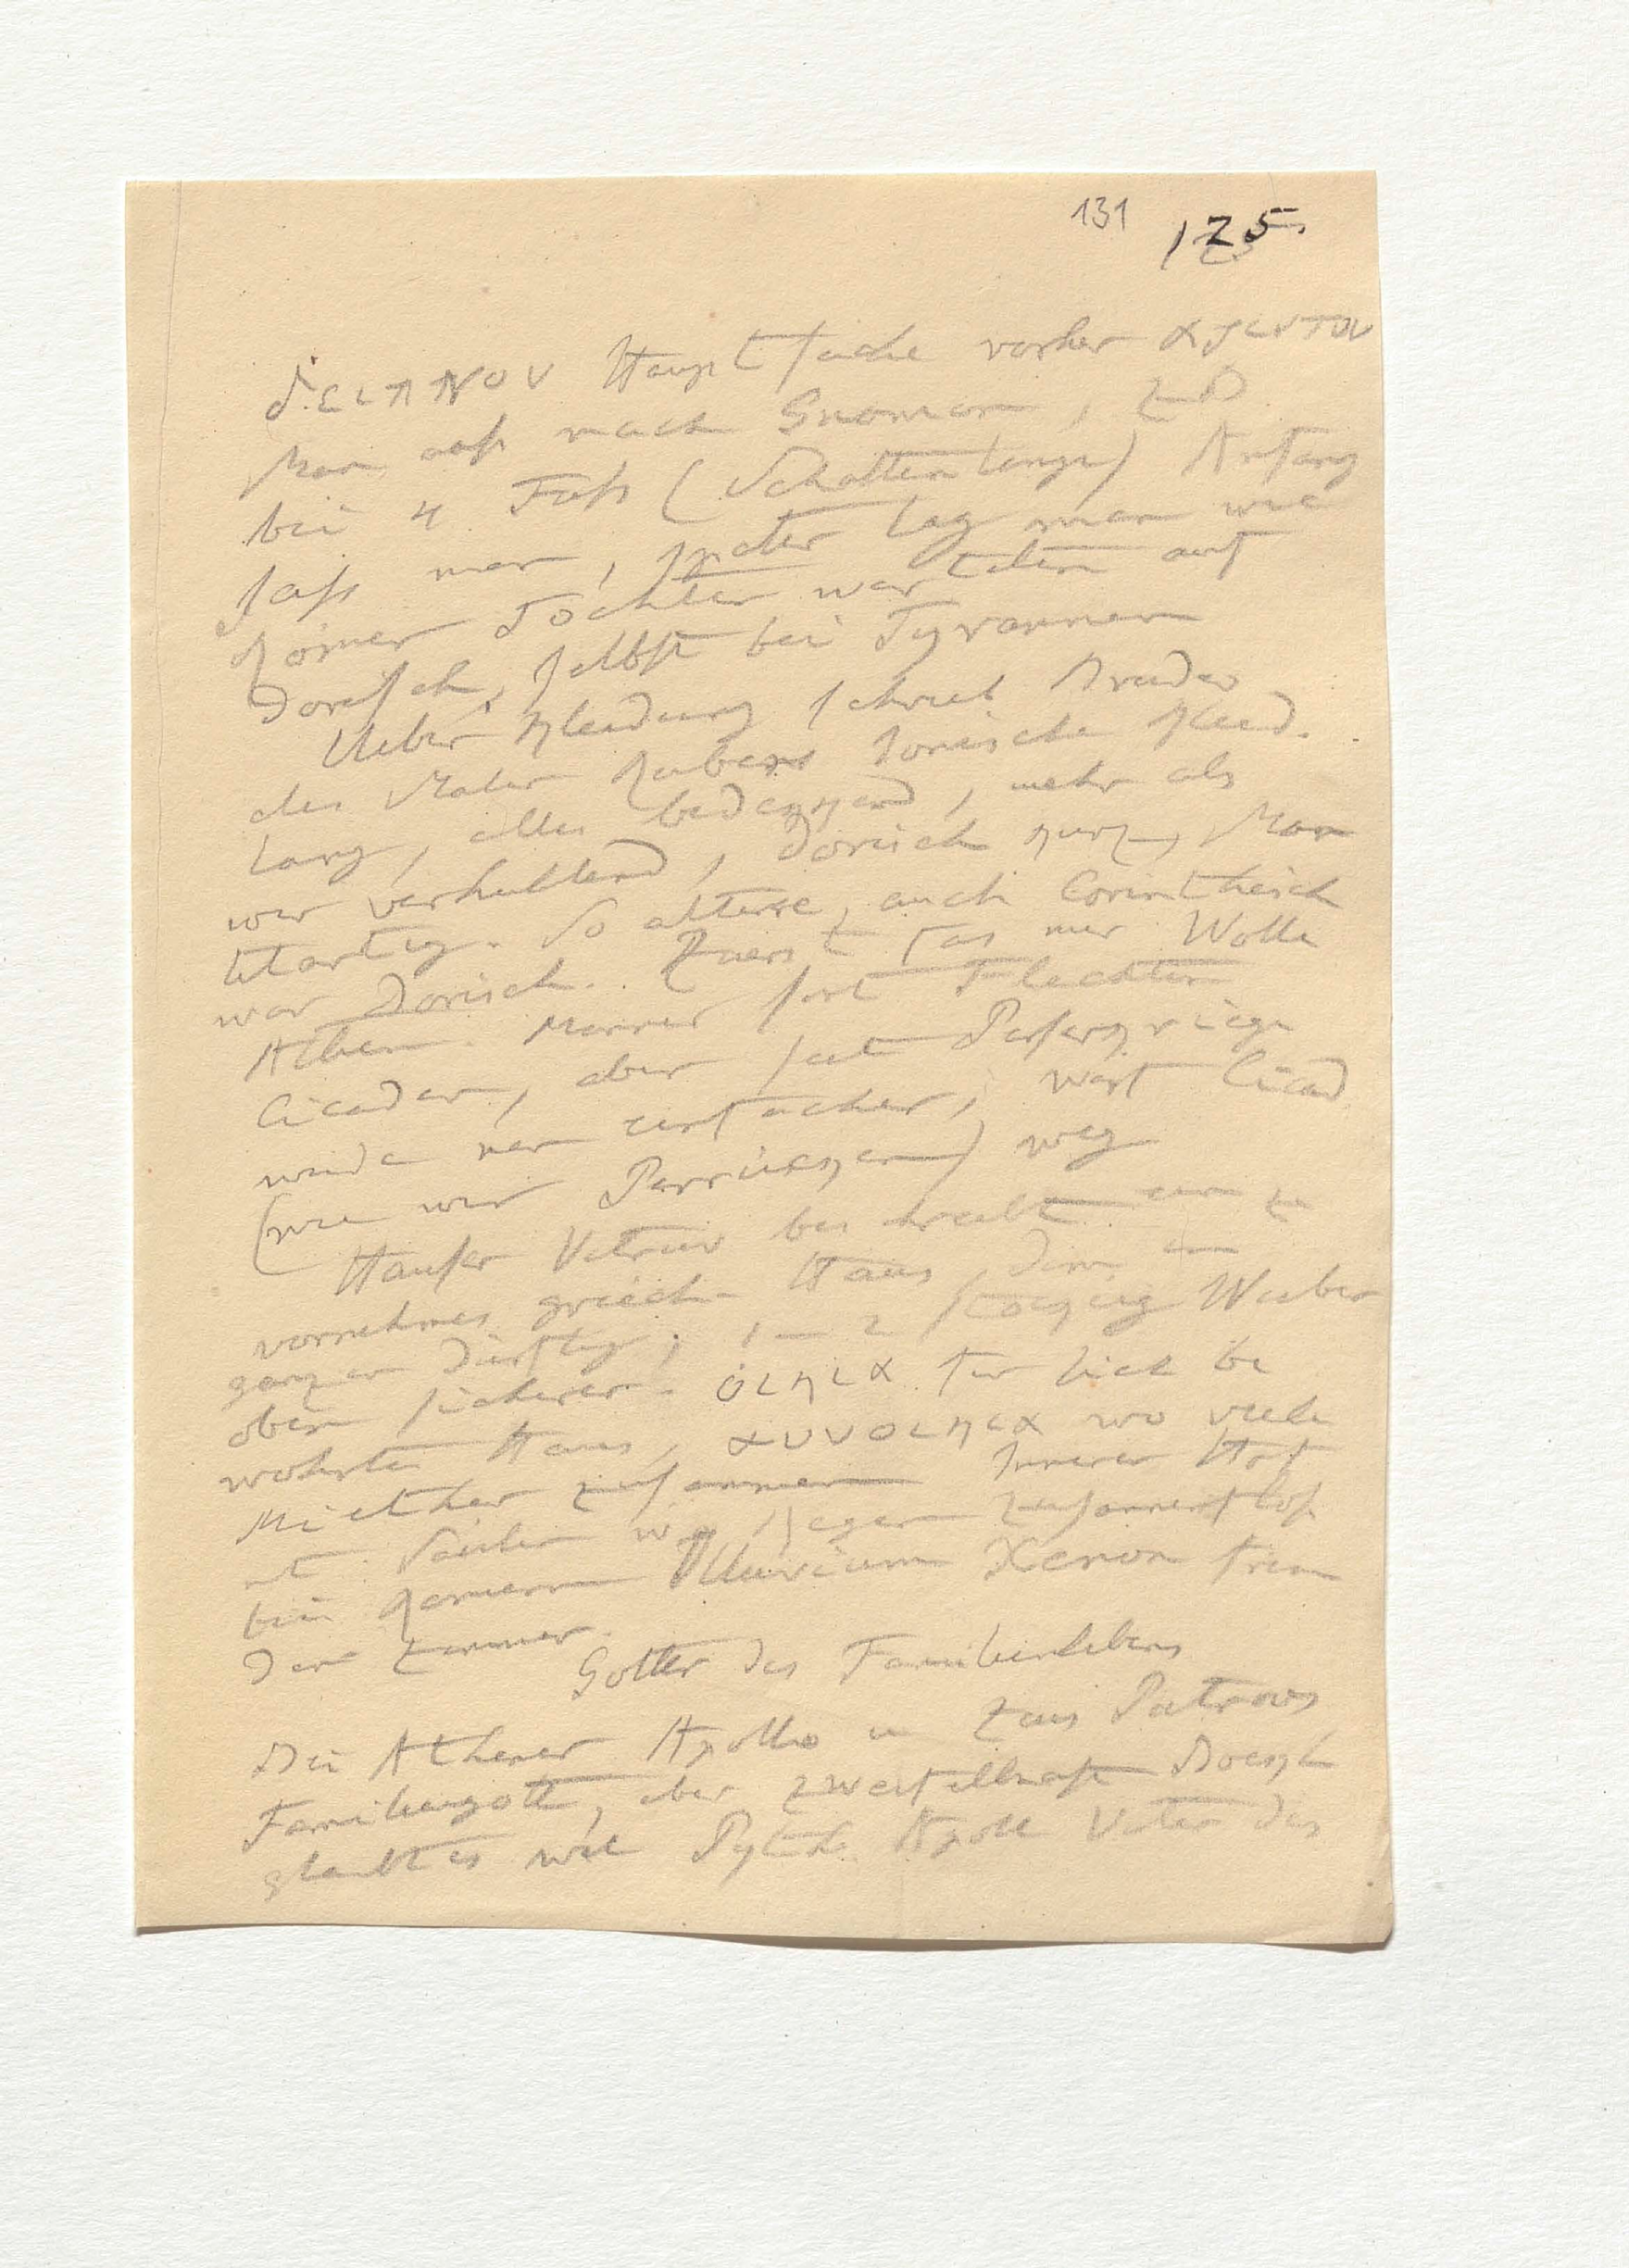 131 125.
δειπνον Hauptsache vorher αριστον
Man ass nach Gnomon, z B
bei 4 Fuss (Schattenlänge) Anfang
sass man, später lag man wie
Römer Töchter warteten auf
Dorisch, selbst bei Tyrannen
Ueber Kleidung schrieb Bruder
des Maler Rubens Ionische Kleid.
lang, alles bedekkend, mehr als
wir verhullend, Dorisch kurz, Man
telartig. So alteste, auch Corinthisch
war Dorisch. Zuerst nur Wolle
Athen. Manner Flechten
Cicaden, aber seit Perserkriege
wurde man einfacher, warf Cicad
(wie wir Perrükken) weg
Hauser Vitruv beschreibt ein
vornehmes griech. Haus, dem
ganzen dürftig, 1–2 stokkig Weiber
oben sicherer. οικια fur sich be
wohnte Haus, συνοικια wo viele
Miether zusammen Innerer Hof
mt Säulen wo Regen zusammenfloss
bei Romern Impluvium Xenon frem
den Zimmer.
Gotter des Familienlebens
Bei Athener Apollo u Zeus Patroos
Familiengott, aber zweifelhaft Boekh
glaubt es weil Pyth. Apoll Vater des